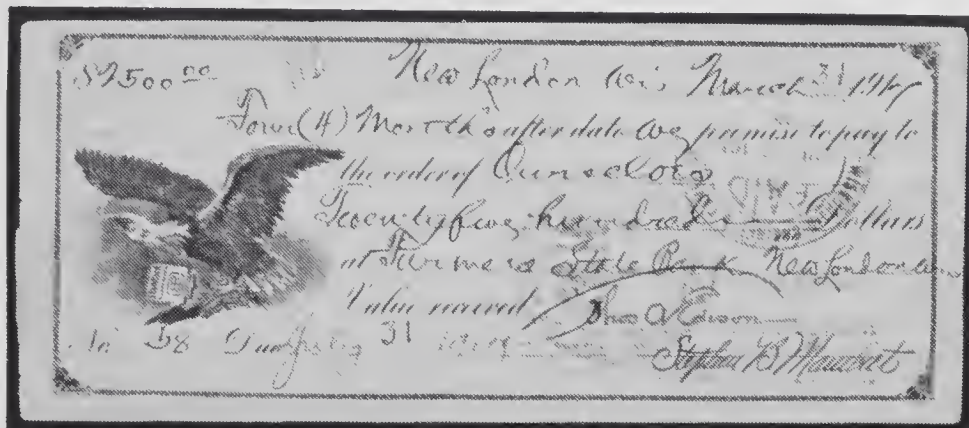 $2500.00 New London Wis March 31 1917
Four (4) Months after date We promise to pay to
the order of Ourselves
Twenty five hundred Dollars
at Farmers State Bank New London Wis
Value received Thos A Edison
No 58 Due July 31 1917
Stephen B